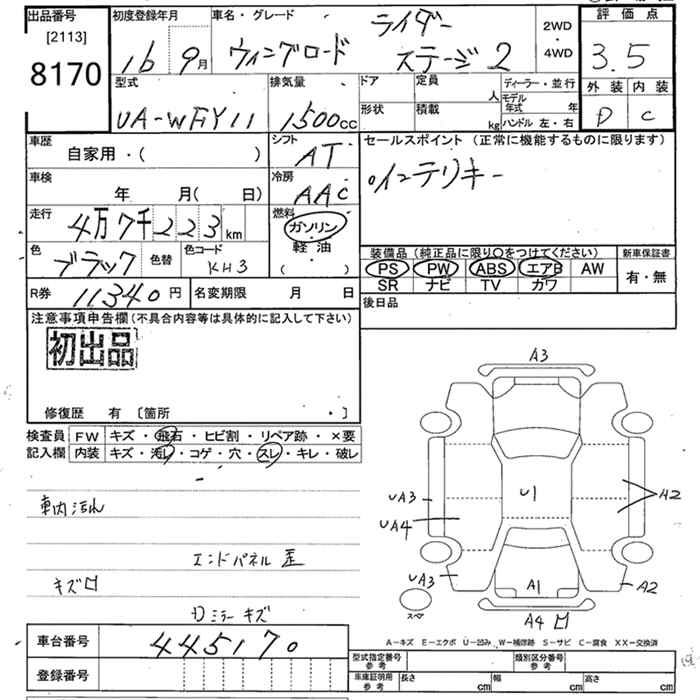 出品番号 初度登録年月 車名・グレード ライダー 2WD 評価点
[2113] 16 9月 ウィングロード ステージ2 ・ 3.5
8170 4WD
型式 排気量 ドア 定員 人 ディーラー・並行 外装 内装
UA-WFY11 1500cc 形状 積載 kg モデル年式 年 D C
ハンドル 左・右
車歴 シフト セールスポイント (正常に機能するものに限ります)
自家用・( ) AT インテリキー
車検 冷房
年 月( 日) AAC
走行 燃料
4万7千223km ガソリン
色 色替 色コード 軽油 装備品 (純正品に限り○をつけてください) 新車保証書
ブラック KH3 ( ) PS PW ABS エアB AW 有・無
R券 11340円 名変期限 月 日 SR ナビ TV カワ
後日品
注意事項申告欄(不具合内容等は具体的に記入して下さい)
初出品
修復歴 有 [箇所 ・ ]
検査員 FW キズ・飛石・ヒビ割・リペア跡・×要
記入欄 内装 キズ・汚レ・コゲ・穴・スレ・キレ・破レ
A3
U1
UA3 A2
UA4
車内汚れ
エンドパネル歪
キズ
UA3 A1 A2
スペア
A4
ミラーキズ
A-キズ E-エクボ U-凹み W-補修跡 S-サビ C-腐食 XX-交換済
車台番号 445170
型式指定番号 参考 類別区分番号 参考
登録番号
車庫証明用 参考 長さ cm 幅 cm 高さ cm